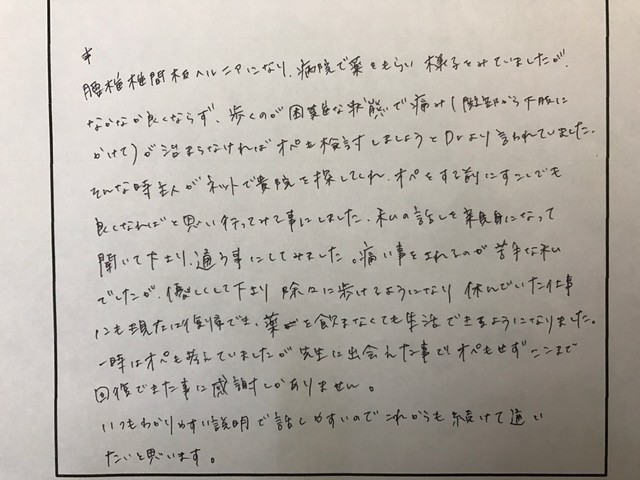 *
腰椎椎間板ヘルニアになり、病院で薬をもらい様子をみていましたが、
なかなか良くならず、歩くのが困難な状態で痛み(臀部から下肢に
かけて)が治まらなければオペを検討しましょうとDrより言われていました。
そんな時主人がネットで貴院を探してくれ、オペをする前にすこしでも
良くなればと思い行ってみる事にしました。私の話しを親身になって
聞いて下さり、通う事にしてみました。痛い事をされるのが苦手な私
でしたが、優しくして下さり除々に歩けるようになり休んでいた仕事
にも現在は復帰でき、薬を飲まなくても生活できるようになりました。
一時はオペも考えていましたが先生に出会えた事でオペもせずここまで
回復できた事に感謝しかありません。
いつもわかりやすい説明で話しやすいのでこれからも続けて通い
たいと思います。